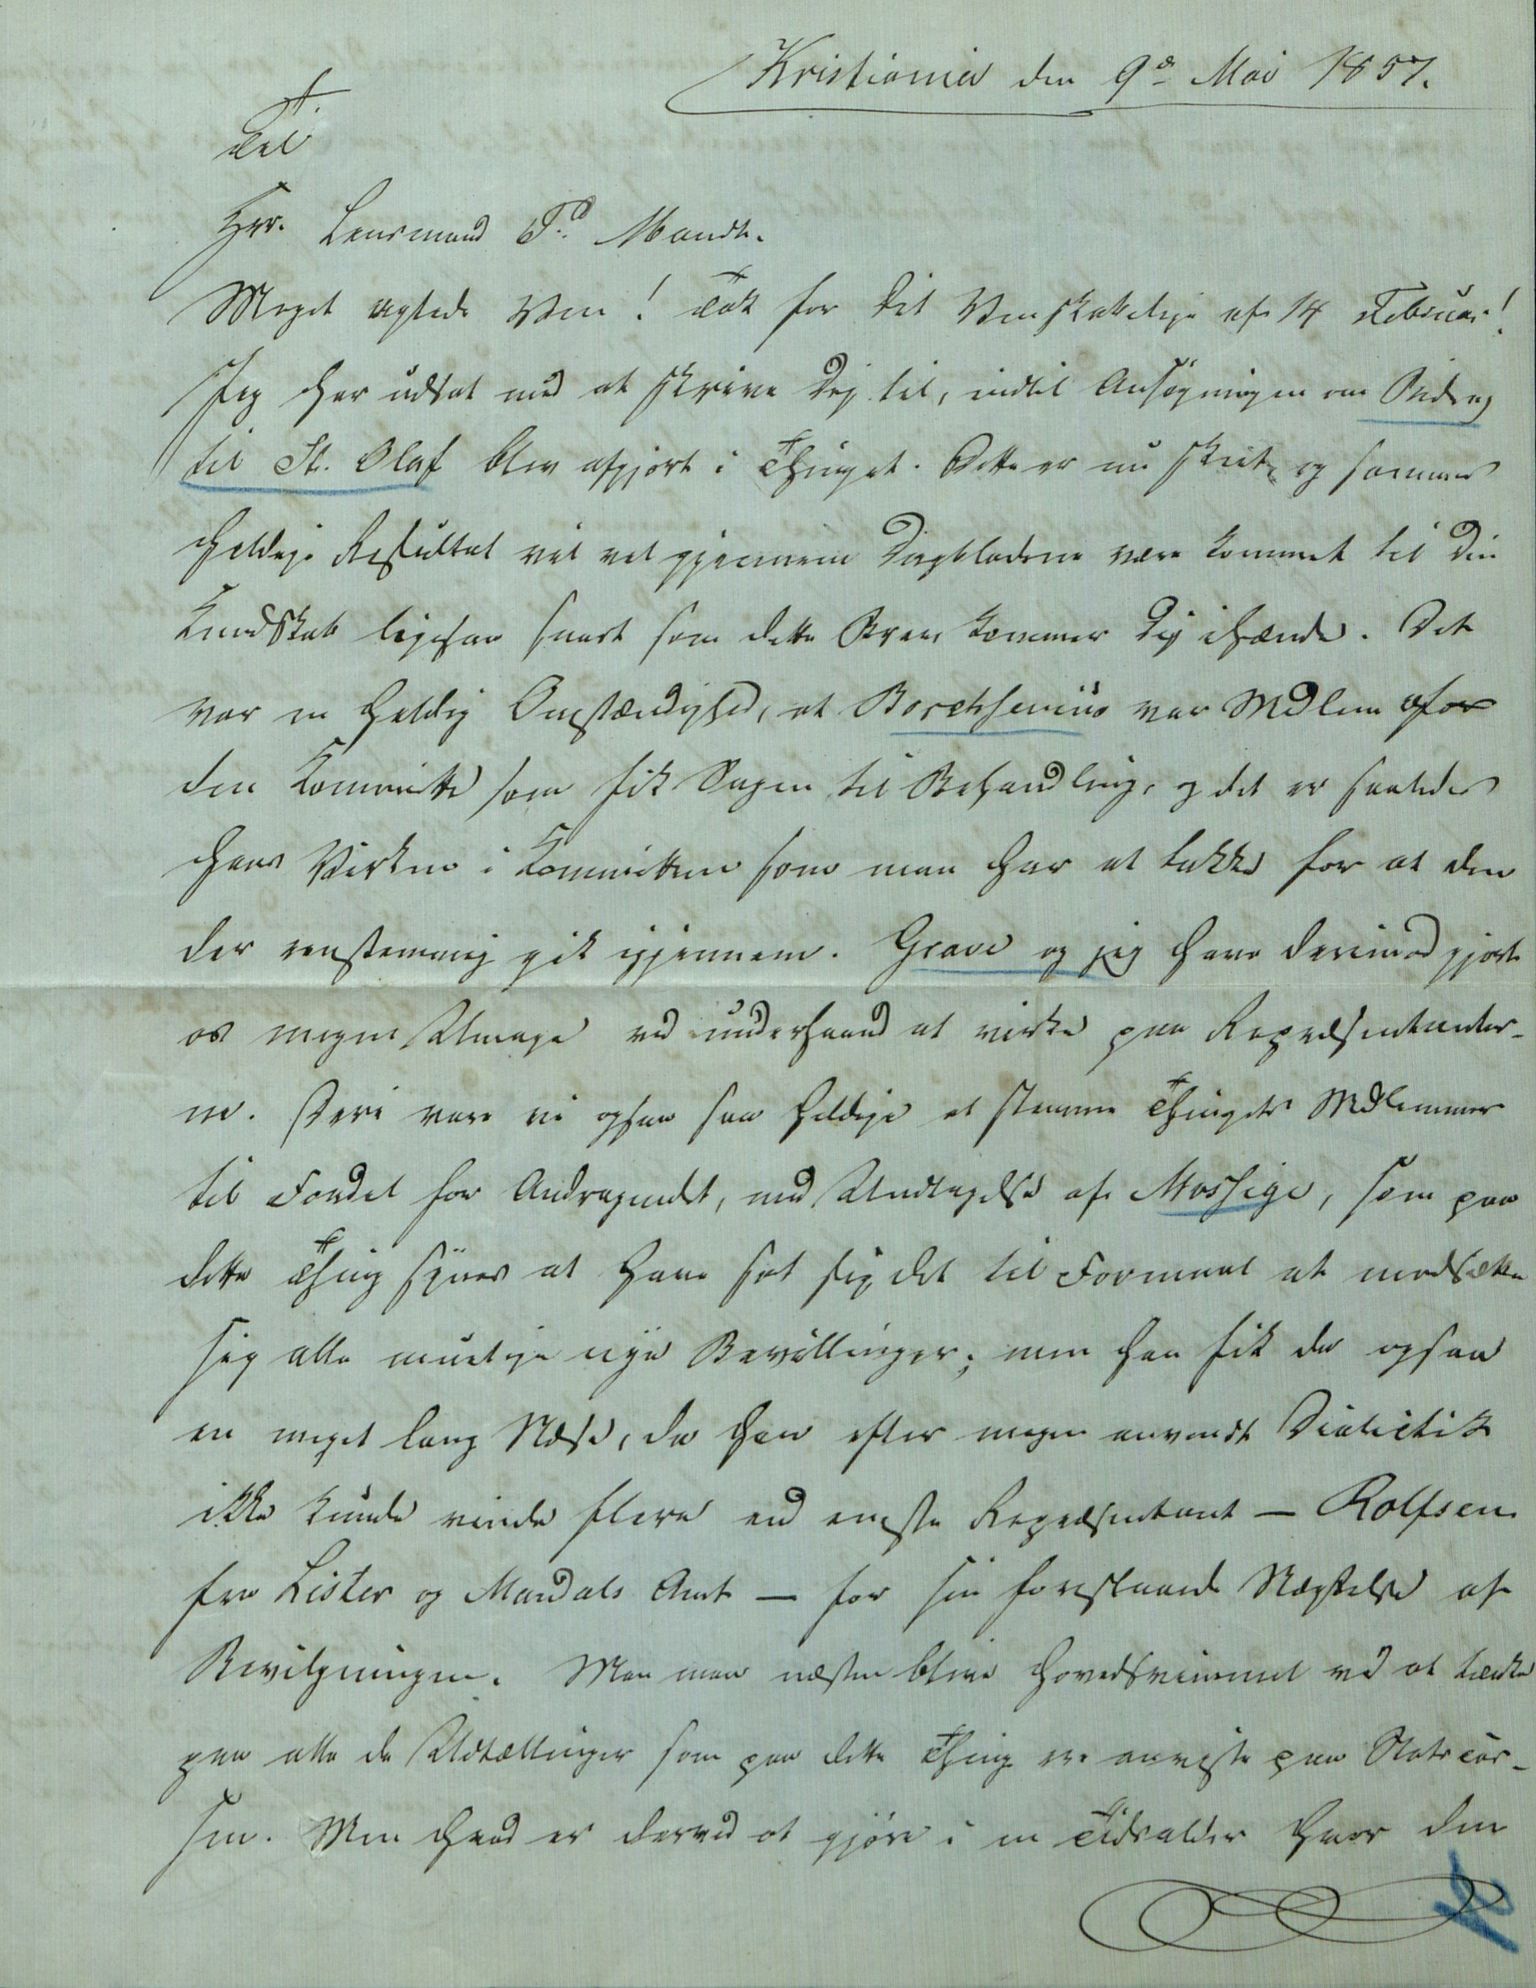 Kristiania den 9de Mai 1857.
Til
Hr. Lensmand Td Mandt.
Meget agtede Ven! Tak for Dit Venskabelige af 14 Februar!
Jeg har udsat med at skrive Dig til, indtil Ansøgningen om Bidrag
til St. Olaf blev afgjort i Thinget. Dette er nu skeet, og sammes
heldige Resultat vil vel gjennem Dagbladene være kommet til Din
Kundskab ligesaa snart som dette Brev kommer Dig ihænde. Det
var en heldig Omstændighed, at Borchsenius var Medlem af
den Komitte som fik Sagen til Behandling, og det er saaledes
hans Virken i Kommitteen som man har at takke for at den
der eenstemmig gik igjennem. Grave og jeg have derimod gjort
os megen Umage ved underhaand at virke paa Repræsentanter-
ne. Deri vare vi ogsaa saa heldige at stemme Thingets Medlemmer
til Fordel for Andragendet, med Undtagelse af Mossige, som paa
dette Thing synes at have sat sig det til Formaal at modsætte
sig alle muelige nye Bevillinger; men han fik da ogsaa
en meget lang Næse, da han efter megen anvendt Dialectik
ikke kunde vinde flere end eneste Repræsentant — Rolfsen
fra Lister og Mandals Amt — for sin foreslaaede Nægtelse af
Bevilgningen. Man maa næsten blive hovedsvimmel ved at tænke
paa alle de Udtællinger som paa dette Thing ere anviste paa Statscas-
sen. Men hvad er derved at gjøre i en Tidsalder hvor den